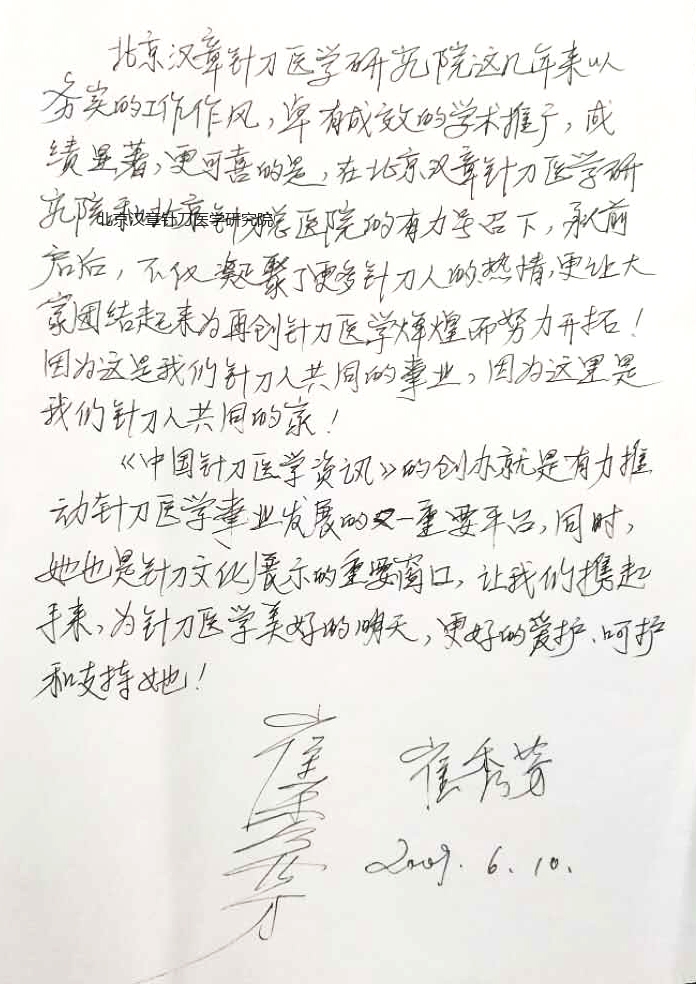 北京汉章针刀医学研究院这几年来以
务实的工作作风,卓有成效的学术推广,成
绩显著,更可喜的是,在北京汉章针刀医学研
究院和北京针刀总医院的有力号召下,承前
北京汉章针刀医学研究院
启后,不仅凝聚了更多针刀人的热情,更让大
家团结起来为再创针刀医学辉煌而努力开拓!
因为这是我们针刀人共同的事业,因为这里是
我们针刀人共同的家!
《中国针刀医学资讯》的创办就是有力推
动针刀医学事业发展的又一重要平台,同时,
她也是针刀文化展示的重要窗口,让我们携起
手来,为针刀医学美好的明天,更好的爱护、呵护
和支持她!
崔秀芳
崔秀芳
2009.6.10.